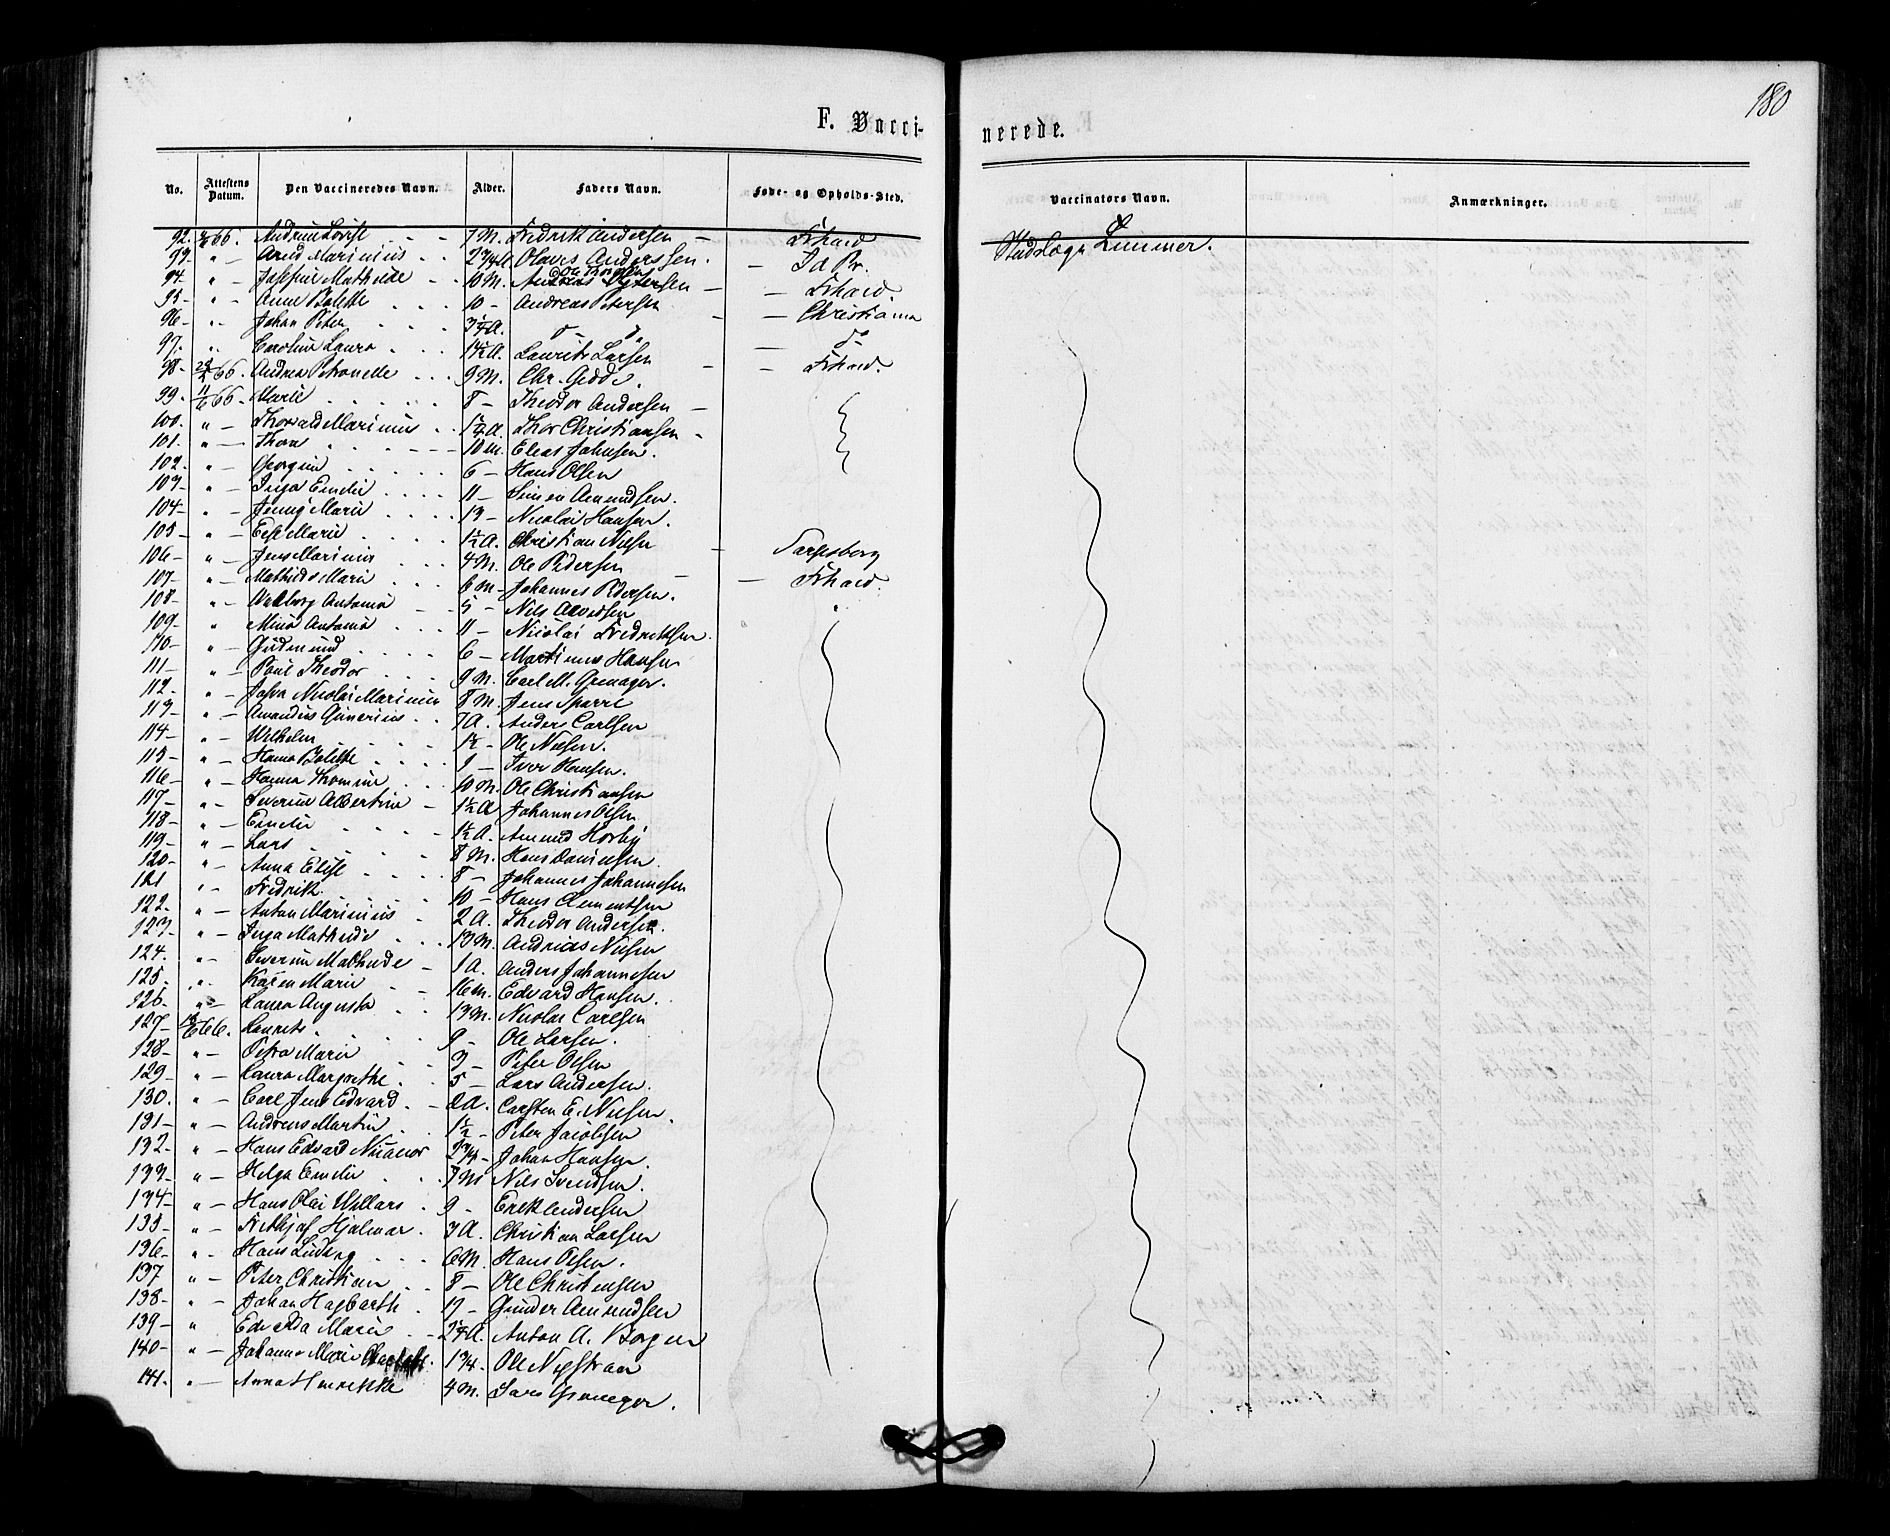 180
F. Vacci-
nerede.
No. Attestens Datum. Den Vaccineredes Navn. Alder. Faders Navn. Føde- og Opholds-Sted. Vaccinators Navn. Anmærkninger.
92. 66. Lovise 7 M. Fredrik Andersen — Frhald Stadslæge Lemmer.
93. " — Arnd Marinius 2 3/4 A Olaves Anderssen. — Id Pr.
94. " — Josefine Mathilde 10 M. Andreas — Frhald.
95. " — Anne Bolette 10 — Andreas Petersen — Christiania
96. " — Johan Peter 3 1/4 A. d° d° — d°
97. " Caroline Laura 14 1/2 A. Laurits Larsen — Frhald.
98. 66. Andrea Petronelle 9 M. Chr. Gedde.
99. 11/6 66. Marie 8 — Theodor Andersen —
100. " — Thorvald Marinius 1 1/4 A. Thor Christiansen -
101. " — Thora 10 m. Elias Johnsen.
102. " — Georgine 6 — Hans Olsen
103. " — Inga Emilie 11 — Simen Amundsen.
104. " — Jenny Marie 13 — Nicolai Hansen.
105. " — Else Marie 1 1/2 A. Christian Nilsen — Sarpsborg
106. " — Jens Marinius 4 M. Ole Pedersen — Frhald.
107. " — Mathilde Marie 6 m — Johannes Pedersen.
108. " — Walborg Antonia 5 — Nils Arvedsen
109. " Mina Antonia 11 — Nicolai Fredriksen
110. " — Gudmund 6 — Martinus Hansen
111. " — Paul Theodor 9 M. Carl M. Grenager.
112. " — Nicolai Marinius 8 M. Jens Sparre
113. " — Amandus Gunerius 7 A. Anders Carlsen
114. " — Wilhelm 1 1/2 — Ole Nilsen.
115. " — Hanna Bolette 9 — Iver Hansen.
116. " — Hanna Thomine 10 M. Ole Christiansen
117. " — Severine Albertine 1 1/2 A Johannes Olsen
118. " — Emilie 1 1/2 A. Amund Hornby
119. " — Lars 8 M. Hans Danielsen
120. " Anna Elise 8 — Johannes Johannesen
121. " — Fredrik 10 — Hans Clementsen
122. " — Anton Marinius 2 A. Theodor Andersen.
123. " — Inga Mathilde 13 M. Andreas Nilsen
124. " — Severine Mathilde 1 A. Anders Johannesen
125. " Karen Marie 16 m. Edvard Hansen.
126. " — Laura Augusta 13 M. Nicolai Carlsen
127. 66. Laurits. 9 — Ole Larsen.
128. " — Petra Marie 3 — Peter Olsen
129. " — Laura Margrethe 5 — Lars Andersen.
130. " — Carl Jens Edvard 2 A. Carsten E. Nilsen.
131. " — Andreas Martin 1 1/2 — Peter Jacobsen
132. " — Hans Edvard Nicanor 2 3/4 — Johan Hansen.
133. " — Helga Emilie 7 M Nils Svendsen.
134. " — Hans Olai Willars 9 — Erik Andersen
135. " — Frithjof Hjalmar 3 A. Christian Larsen
136. " — Hans Ludvig 6 M. Hans Olsen.
137. " — Peter Christian 8 — Ole Christensen
138. " — Johan Hagbarth 19 — Gunder Amundsen
139. " Edvarda Marie 2 1/4 A. Anton A. Borgen
140. " — Johanne Marie 1 3/4. Ole Nystraa
141. " — Anna Henrikke 4 M. Lars Grenager.